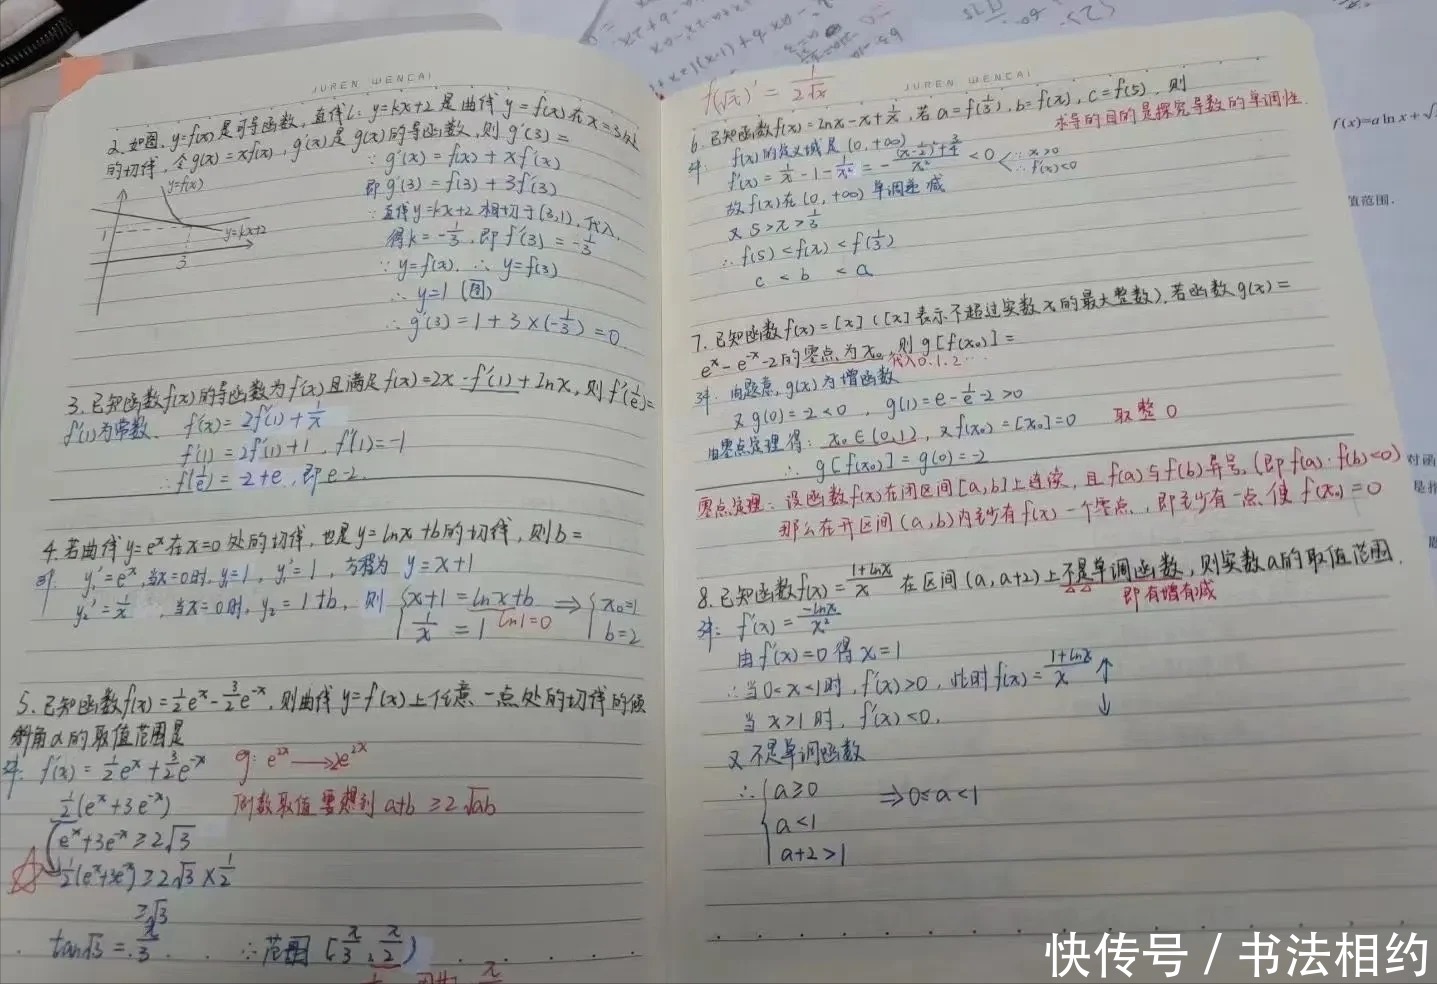 JUREN WENCAI
2. 如图, y=f(x)是可导函数, 直线L: y=kx+2是曲线y=f(x)在x=3处
的切线, 令g(x)=xf(x), g'(x)是g(x)的导函数, 则g'(3)=
∵ g'(x)=f(x)+xf'(x)
y=f(x)
即g'(3)=f(3)+3f'(3)
∵直线y=kx+2相切于(3,1), 代入,
1
y=kx+2
得k=-1/3, 即f'(3)=-1/3
3
∵y=f(x). ∴ y=f(3)
∴ y=1 (图)
∴ g'(3)=1+3×(-1/3)=0
3. 已知函数f(x)的导函数为f'(x)且满足f(x)=2x·f'(1)+lnx, 则f'(1/e)=
f'(1)为常数. f'(x)=2f'(1)+1/x
f'(1)=2f'(1)+1, f'(1)=-1
∴f'(1/e)=-2+e, 即e-2.
4. 若曲线y=e^x在x=0处的切线, 也是y=lnx+b的切线, 则b=
y₁'=e^x, 当x=0时, y₁=1, y₁'=1, 方程为 y=x+1
y₂'=1/x, 当x=0时, y₂=1+b, 则 { x+1=lnx+b ⇒ { x₀=1
1/x=1 ln1=0 b=2
5. 已知函数f(x)=1/2e^x-3/2e^-x, 则曲线y=f(x)上任意一点处的切线的倾
斜角α的取值范围是
解: f'(x)=1/2e^x+3/2e^-x eg: e^2x→2e^2x
1/2(e^x+3e^-x) 倒数取值要想到 a+b≥2√ab
e^x+3e^-x≥2√3
1/2(e^x+3e^-x)≥2√3×1/2
≥√3
tan√3=π/3 ∴范围[π/3, π/2)
JUREN WENCAI
f(√x)'=1/2√x
6. 已知函数f(x)=lnx-x+1/x, 若a=f(1/3), b=f(π), c=f(5), 则
求导的目的是探究导数的单调性.
解: f(x)的定义域是(0,+∞)
f'(x)=1/x-1-1/x²=-((x-1/2)²+3/4)/x²<0 ∵x>0
∴f'(x)<0
故f(x)在(0,+∞)单调递减
又5>π>1/3
∴f(5)<f(π)<f(1/3)
c < b < a
7. 已知函数f(x)=[x]([x]表示不超过实数x的最大整数), 若函数g(x)=
e^x-e^-x-2的零点为x₀, 则g[f(x₀)]=
代入0.1.2…
解: 由题意, g(x)为增函数
又g(0)=-2<0, g(1)=e-1/e-2>0
由零点定理得: x₀∈(0,1), 又f(x₀)=[x₀]=0 取整 0
∴ g[f(x₀)]=g(0)=-2
零点定理: 设函数f(x)在闭区间[a,b]上连续, 且f(a)与f(b)异号, (即f(a)·f(b)<0)
那么在开区间(a,b)内至少有f(x)一个零点, 即至少有一点使f(x₀)=0
8. 已知函数f(x)=(1+lnx)/x 在区间(a,a+2)上不是单调函数, 则实数a的取值范围.
即有增有减
解: f'(x)=-lnx/x²
由f'(x)=0得x=1
∴当0<x<1时, f'(x)>0, 此时f(x)=(1+lnx)/x ↑
当x>1时, f'(x)<0, ↓
又不是单调函数
∴ { a≥0 ⇒0≤a<1
a<1
a+2>1
f(x)=a ln x+√
值范围.
对函
快传号 / 书法相约